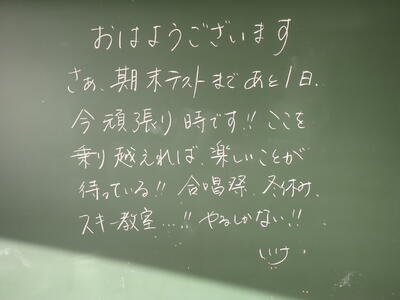 おはようございます
さぁ、期末テストまであと1日、
今頑張り時です!! ここを
乗り越えれば、楽しいことが
待っている!! 合唱祭、冬休み、
スキー教室…!! やるしかない!!